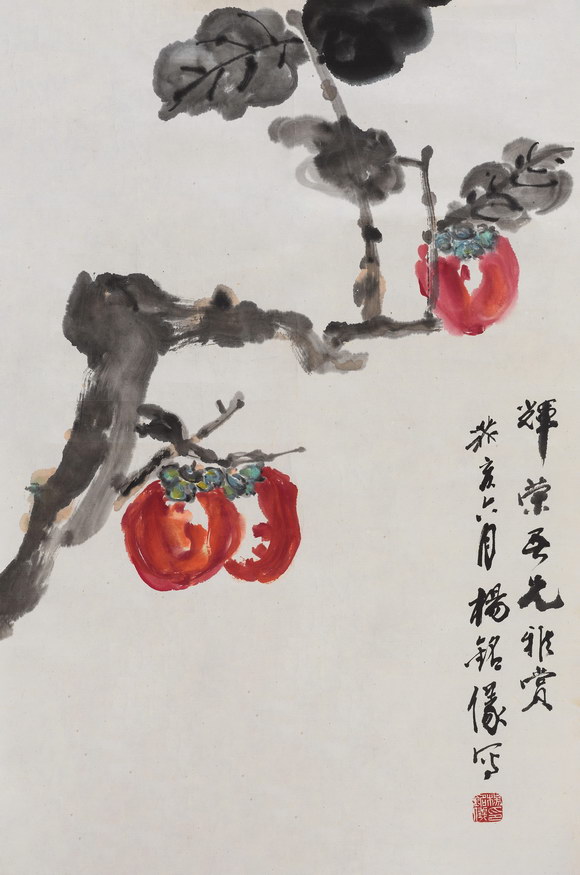 輝榮吾兄雅賞
癸亥六月楊銘儀写